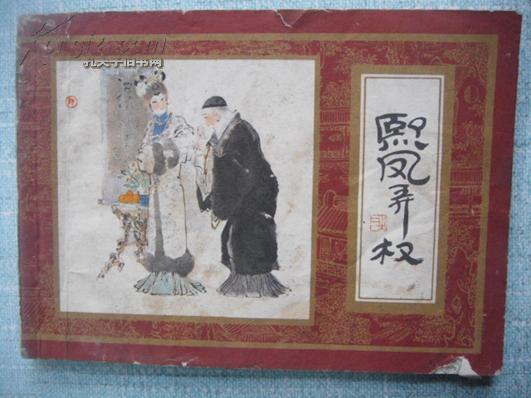 孔夫子旧书网
熙凤弄权